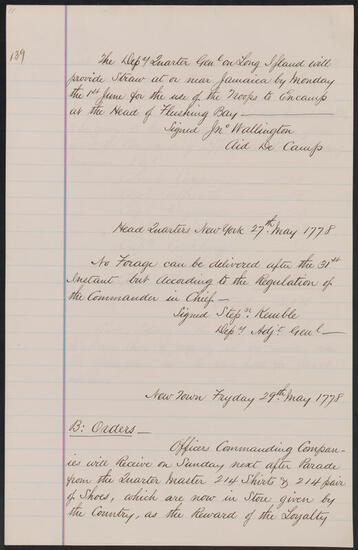 139
The Depy Quarter Genl on Long Island will
provide Straw at or near Jamaica by Monday
the 1st June for the use of the Troops to Encamp
at the Head of Flushing Bay —
Signed Jno Wallington
Aid De Camp
Head Quarters New York 27th May 1778
No Forage can be delivered after the 31st
Instant but According to the Regulation of
the Commander in Chief —
Signed Stepn Kemble
Depy Adjt Genl —
New Town Fryday 29th May 1778
B: Orders —
Officers Commanding Compan-
ies will Receive on Sunday next after Parade
from the Quarter Master 214 Shirts & 214 pair
of Shoes, which are now in Store given by
the Country, as the Reward of the Loyalty